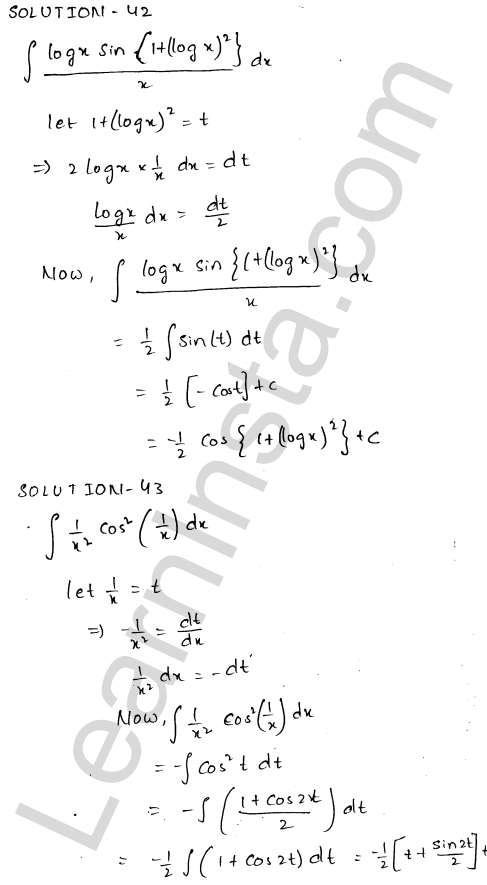 SOLUTION - 42
∫ log x sin {1+(log x)²} / x dx
let 1+(log x)² = t
⇒ 2 log x × 1/x dx = dt
log x / x dx = dt/2
Now, ∫ log x sin {1+(log x)²} / x dx
= 1/2 ∫ sin(t) dt
= 1/2 [- cos t] + c
= -1/2 cos {1+(log x)²} + c
SOLUTION - 43
∫ 1/x² cos² (1/x) dx
let 1/x = t
⇒ -1/x² = dt/dx
1/x² dx = -dt
Now, ∫ 1/x² cos² (1/x) dx
= -∫ cos² t dt
= -∫ (1 + cos 2t / 2) dt
= -1/2 ∫ (1 + cos 2t) dt = -1/2 [t + sin 2t / 2] +
LearnInsta.com